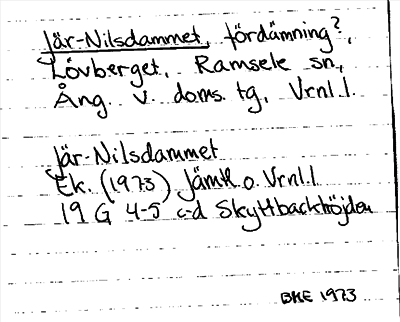 Jär-Nilsdammet, fördämning?,
Lövberget, Ramsele sn,
Ång. v. doms. tg, Vrnl.l.
Jär-Nilsdammet
Ek. (1973) Jämtl. o. Vrnl.l
19 G 4-5 c-d Skyttbackhöjden
BKE 1973